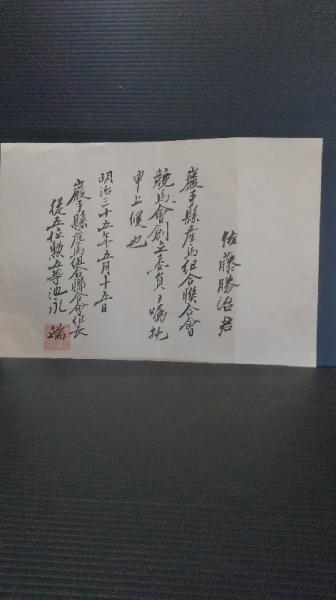 佐藤勝治君
巖手縣産馬組合聯合會
競馬會創立委員ヲ嘱托
申上候也
明治三十五年五月十五日
巖手縣産馬組合聯合會組長
從五位勲五等池永端